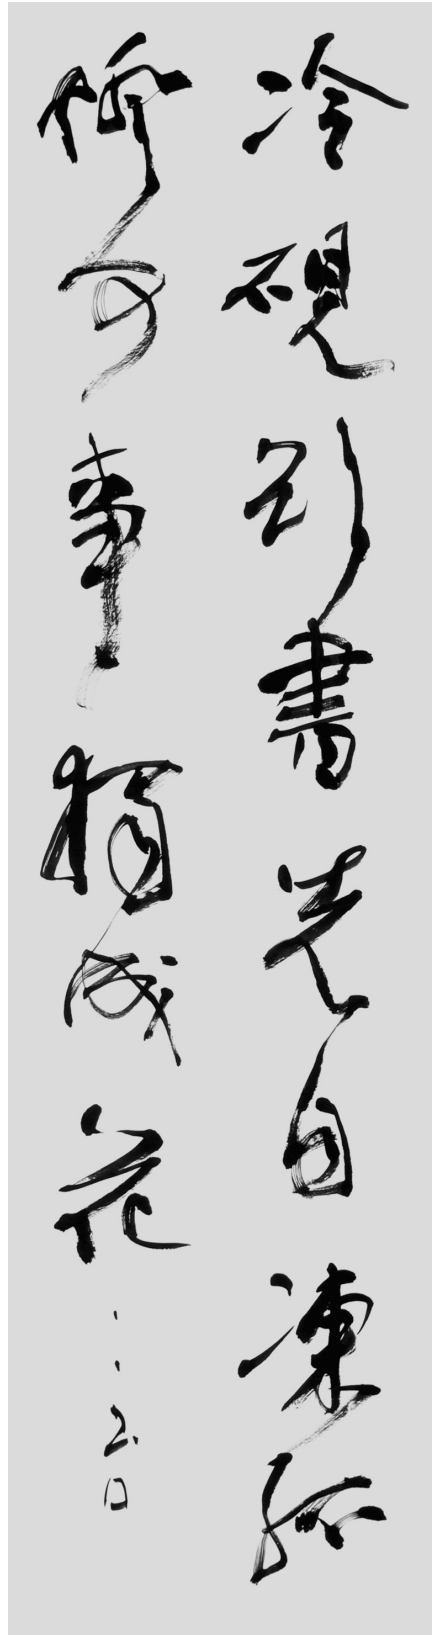 冷硯欲書先自凍孤
燈何事獨成花